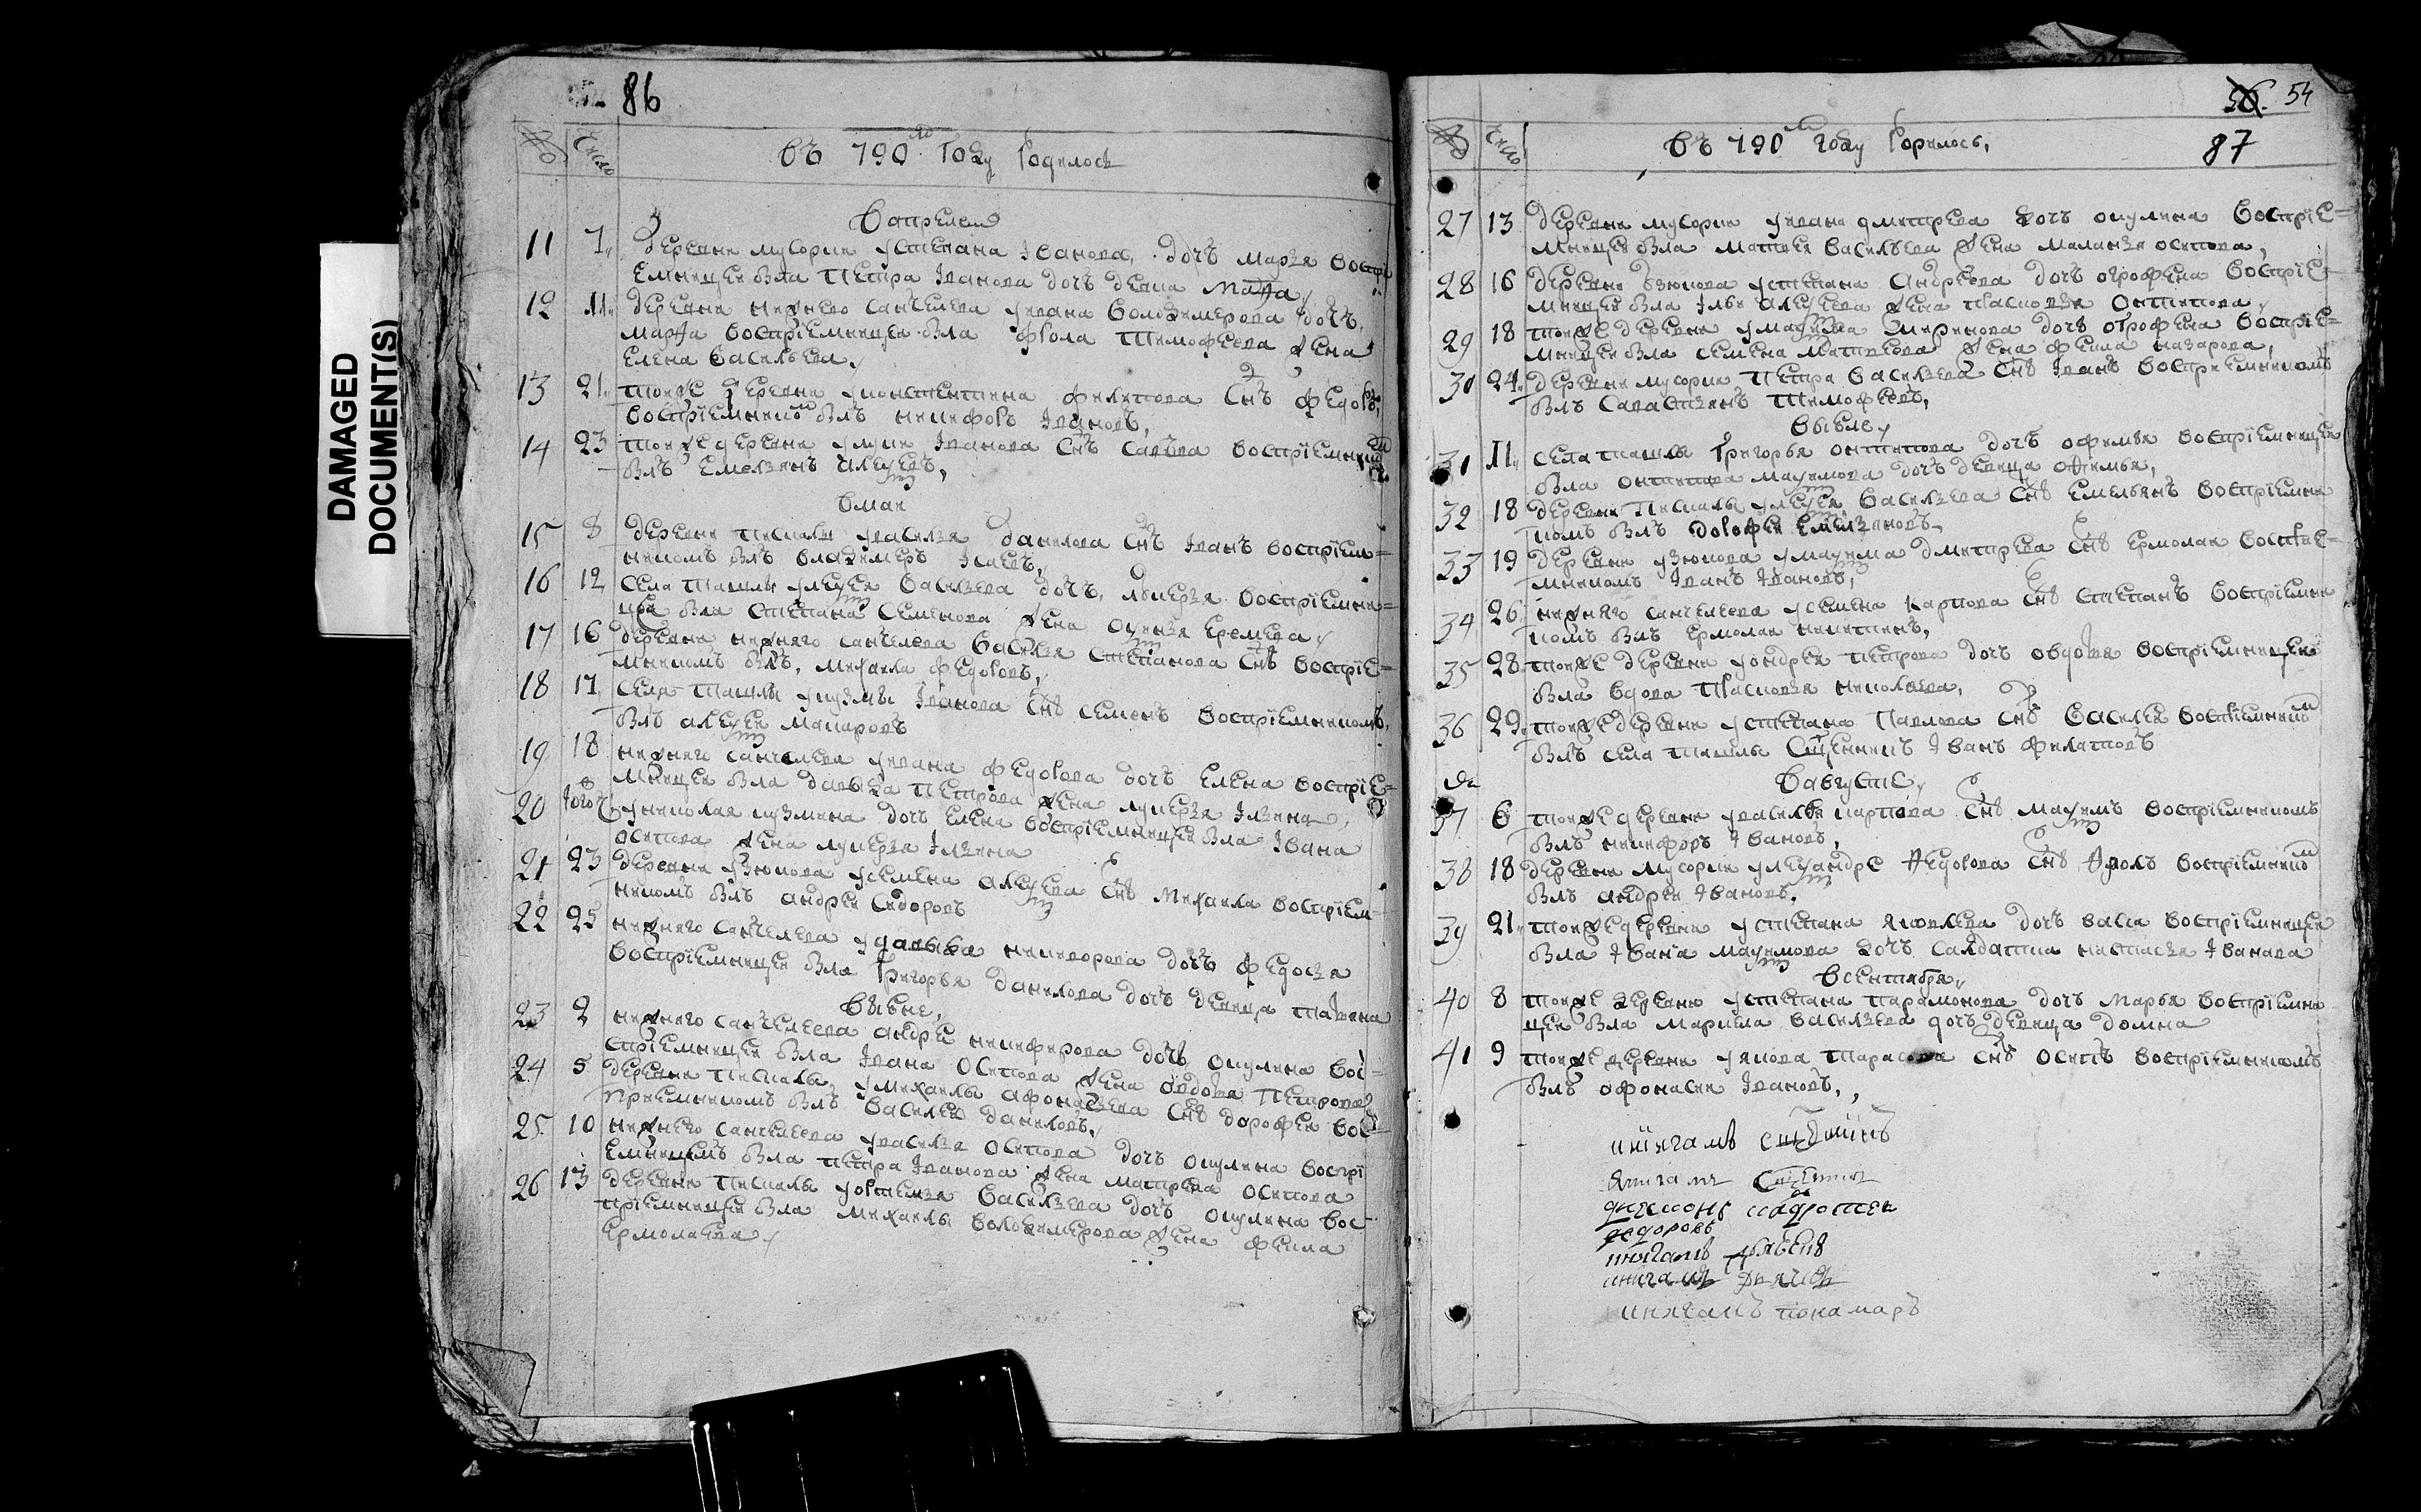 86
№ Число
въ 790м году родилось
в апреле
11 7 деревни мусорки у степана Іванова дочь марья воспрі
емницеи была петра Іванова дочь девка марѳа
12 11 деревни нижнего санчелеева у ивана володимерова дочь
марѳа воспріемница была фрола тимофеева жена
елена васильева
13 21 тоеже деревни у констентина филипова снъ федоръ
воспріемникомъ былъ никифоръ Івановъ
14 23 тоеже деревни у луки Іванова снъ савва воспріемником
былъ емельянъ алеξеевъ
в маи
15 8 деревни пискалы у василья данилова снъ Іванъ воспріем=
никомъ былъ владимеръ Ісаевъ
16 12 села ташлы у алеξея васильева дочь лукерья воспріемни=
цеи была степана семенова жена оξинья еремеева
17 16 деревни нижняго санчелеева василья степанова снъ воспріе=
мникомъ былъ михаила федоровъ
18 17 села ташлы у кузмы Іванова снъ семенъ воспріемникомъ
былъ алеξеи макаровъ
19 18 нижняго санчелеева у ивана федорова дочь елена воспріе=
мницеи была давыда петрова жена лукерья Ільина
20 того ч у николая кузмина дочь елена воспріемницеи была Івана
осипова жена лукерья Ільина
21 23 деревни узюкова у семена алеξеева снъ михаила воспріем=
никомъ былъ андреи сидоровъ
22 25 нижняго санчелеева у давыда никифорова дочь федосья
воспріемницеи была григорья данилова дочь девица
в июне
23 2 нижняго санчелеева андреи никифорова дочь окулина вос=
пріемницеи была Івана осипова жена овдотья петрова
24 5 деревни пискалы у михаилы афонасьева снъ дорофеи вос=
приемникомъ былъ василеи даниловъ
25 10 нижнего санчелеева у василья осипова дочь окулина воспрі
емницеи была петра Іванова жена матрена осипова
26 13 деревни пискалы васильева дочь окулина вос=
пріемницеи была михаилы володимерова жена фекла
ермолаева
56. 54
87
№ Число
въ 790м году родилось,
27 13 деревни мусорки у ивана дмитрева дочь окулина воспріе=
мницеи была матвея васильева жена маланья осипова,
28 16 деревни узюкова у степана андреева дочь огрофена воспріе=
мницеи была Ільи алеξеева жена прасковья онтипова
29 18 тоеже деревни у маξима миронова дочь огрофена воспріе=
мницеи была семена матвеева жена фекла назарова,
30 24 деревни мусорки петра васильева снъ Іванъ воспріемникомъ
былъ савастьянъ тимофеевъ,
в июле
31 11 села ташлы григорья онтипова дочь офимья воспріемницеи
была онтипа маξимова дочь девица офимья,
32 18 деревни пискалы у алеξея васильева снъ емельянъ воспріемни
комъ былъ дорофеи емельяновъ
33 19 деревни узюкова у маξима дмитрева снъ ермолаи воспріе=
мникомъ Іванъ Івановъ,
34 26 нижняго санчелеева у семена карпова снъ степанъ воспріемни
комъ былъ ермолаи никитинъ,
35 28 тоеже деревни у ондрея петрова дочь овдотья воспріемницеи
была вдова прасковья николаева,
36 29 тоеже деревни у степана павлова снъ василеи воспріемником
былъ села ташлы священникъ Іванъ филатовъ
в августе
37 6 тоеже деревни у василья карпова снъ маξимъ воспріемникомъ
былъ никифоръ Івановъ,
38 18 деревни мусорки у алеξандре ѳедорова снъ ѳролъ воспріемником
былъ андреи Івановъ.
39 21 тоеже деревни у степана яковлева дочь васса воспріемницеи
была Івана маξимова дочь салдатка настасья Іванова
в сентябре
40 8 тоеже деревни у степана парамонова дочь марья воспріемни
цеи была маркела васильева дочь девица домна
41 9 тоеже деревни у якова тарасова снъ осипъ воспріемникомъ
былъ офонасеи Івановъ,
федоровъ
книгамъ пономаръ
DAMAGED
DOCUMENT(S)